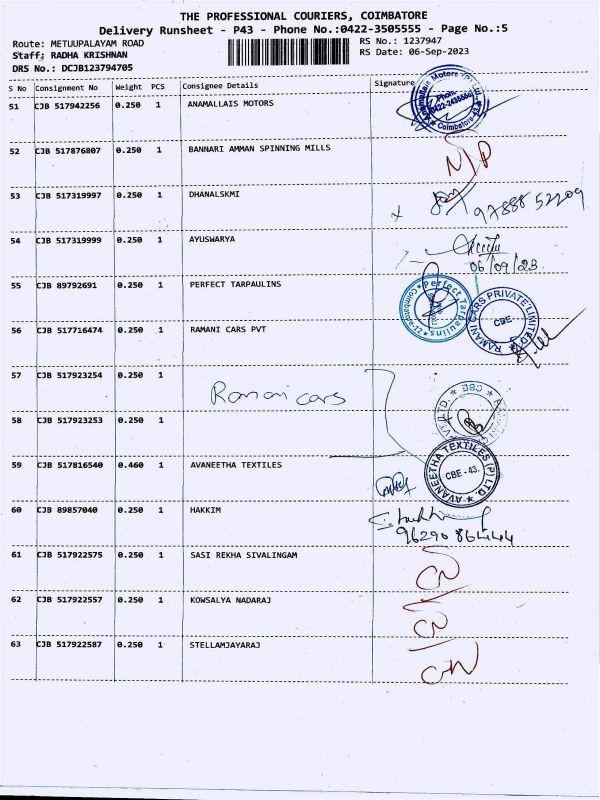 THE PROFESSIONAL COURIERS, COIMBATORE
Delivery Runsheet - P43 - Phone No.:0422-3505555 - Page No.:5
Route: METUUPALAYAM ROAD
RS No.: 1237947
Staff: RADHA KRISHNAN
RS Date: 06-Sep-2023
DRS No.: DCJB123794705
S No Consignment No Weight PCS Consignee Details Signature
51 CJB 517942256 0.250 1 ANAMALLAIS MOTORS
52 CJB 517876807 0.250 1 BANNARI AMMAN SPINNING MILLS N/P
53 CJB 517319997 0.250 1 DHANALSKMI
54 CJB 517319999 0.250 1 AYUSWARYA
06/09/23
55 CJB 89792691 0.250 1 PERFECT TARPAULINS
Perfect Tarpaulins
56 CJB 517716474 0.250 1 RAMANI CARS PVT
RAMANI CARS PRIVATE LIMITED
CBE
57 CJB 517923254 0.250 1
Ramani cars
CBE
58 CJB 517923253 0.250 1
59 CJB 517816540 0.460 1 AVANEETHA TEXTILES
AVANEETHA TEXTILES (P) LTD.
CBE - 43.
60 CJB 89857040 0.250 1 HAKKIM
61 CJB 517922575 0.250 1 SASI REKHA SIVALINGAM CN
62 CJB 517922557 0.250 1 KOWSALYA NADARAJ CN
63 CJB 517922587 0.250 1 STELLAMJAYARAJ CN